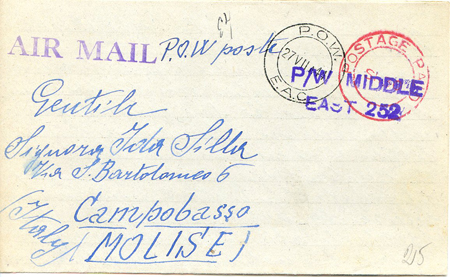 AIR MAIL P.O.W poste
P.O.W.
27 VII
E.A.C.
POSTAGE PAID
P/W MIDDLE
EAST 252
Gentile
Signora Ida Silla
Via S. Bartolomeo 6
Campobasso
(Italy) (MOLISE)